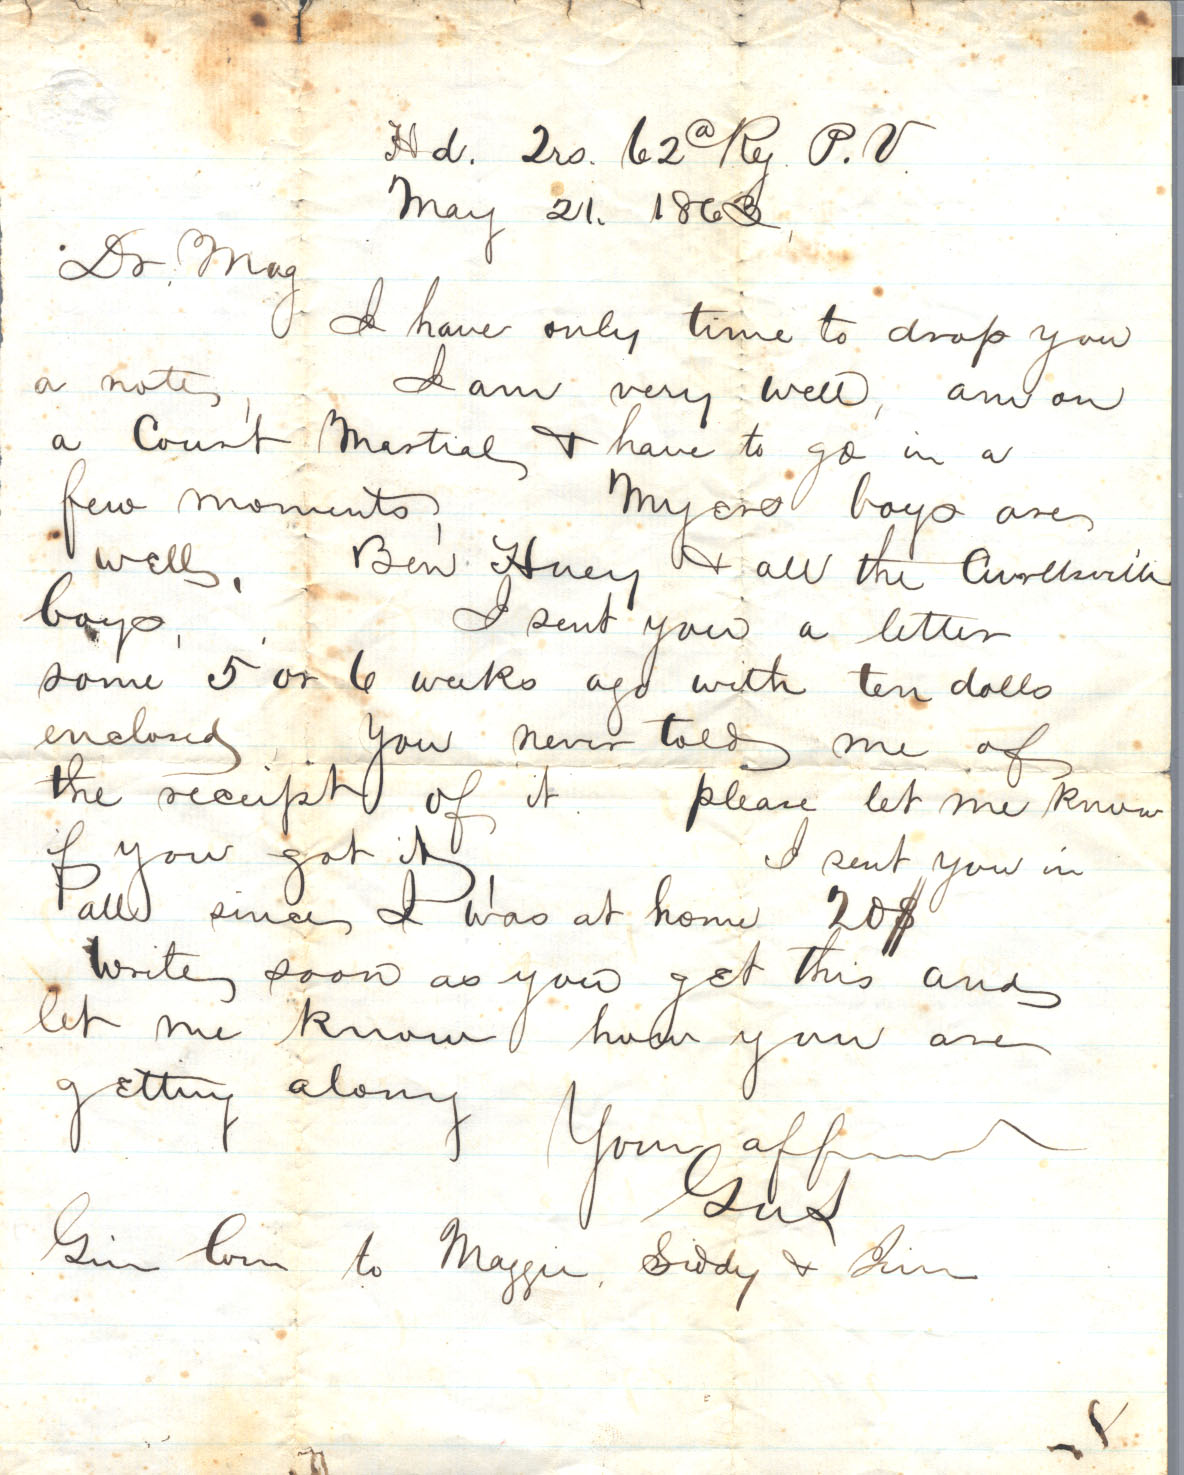 Hd. Qrs. 62d Reg. P. V.
May 21. 1863,
Dr. Mag
I have only time to drop you
a note, I am very well, am on
a Court Martial & have to go in a
few moments, Myers boys are
well, Ben Huey & all the Curllsville
boys, I sent you a letter
some 5 or 6 weeks ago with ten dolls
enclosed, You never told me of
the receipt of it. please let me know
if you got it, I sent you in
all since I was at home 20$
Write soon as you get this and
let me know how you are
getting along
Your aff
Gus
Give love to Maggie, Siddy & Jim